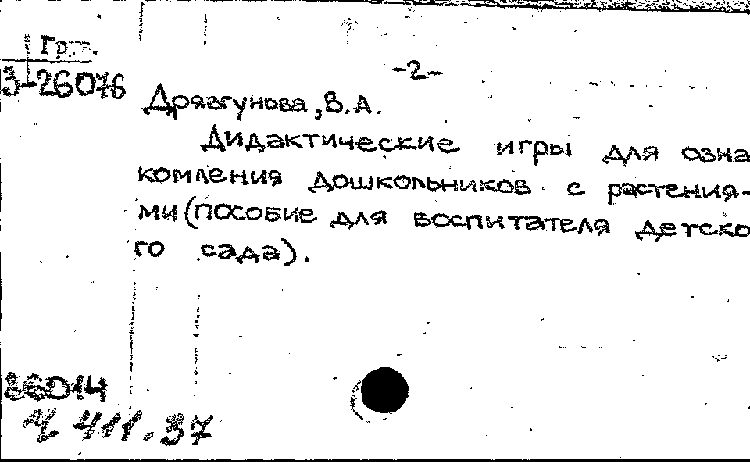 -2-
З-26076
Дрязгунова, В.А.
Дидактические игры для озна
комления дошкольников с растения-
ми (пособие для воспитателя детско
го сада).
86014
Ч 411.37